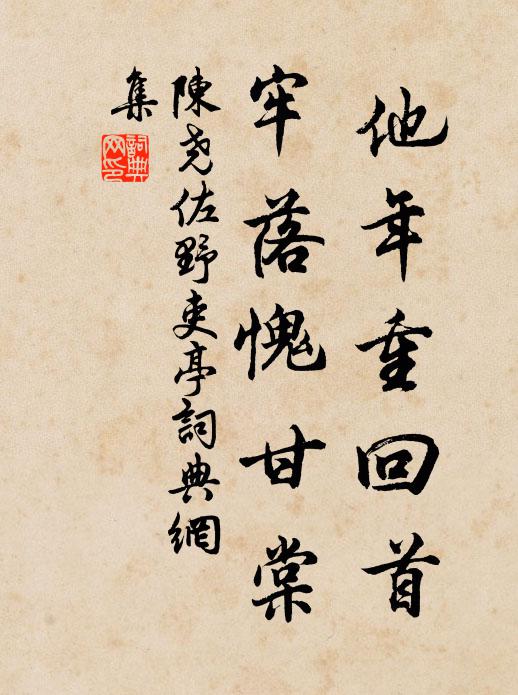 他年重回首
牢落愧甘棠
陳堯佐野吏亭詞典網
集
詞典
网印